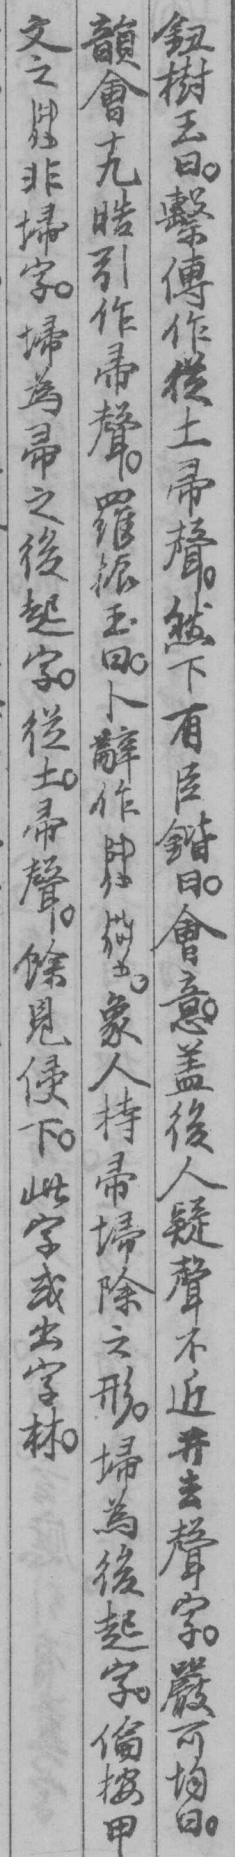 鈕樹玉曰。繫傳作從土帚聲。然下有臣鍇曰。會意。蓋後人疑聲不近幷去聲字。嚴可均曰。
韻會十九晧引作帚聲。羅振玉曰。卜辭作。象人持帚埽除之形。埽為後起字。倫按甲
文之非埽字。埽為帚之後起字。從土。帚聲。餘見侵下。此字或出字林。